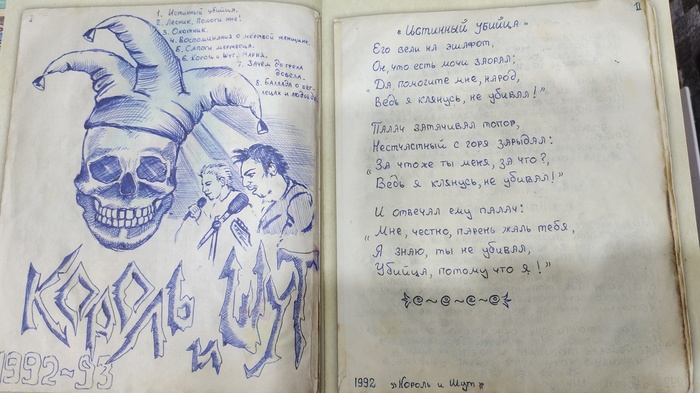 1. Истинный убийца.
2. Лесник, Помоги мне!
3. Охотник.
4. Воспоминания о мёртвой женщине.
5. Сапоги мертвеца.
6. Король и Шут. Мария.
7. Зачем до греха
довела.
8. Баллада о
и людоеде
Король
и Шут
1992-93
II
„Истинный убийца"
Его вели на эшафот,
Он, что есть мочи заорал:
„Да, помогите мне, народ,
Ведь я клянусь, не убивал!"
Палач затачивал топор,
Несчастный с горя зарыдал:
„За что же ты меня, за что?,
Ведь я клянусь, не убивал!"
И отвечал ему палач:
„Мне, честно, парень жаль тебя,
Я знаю, ты не убивал,
Убийца, потому что я!"
1992 „Король и Шут"